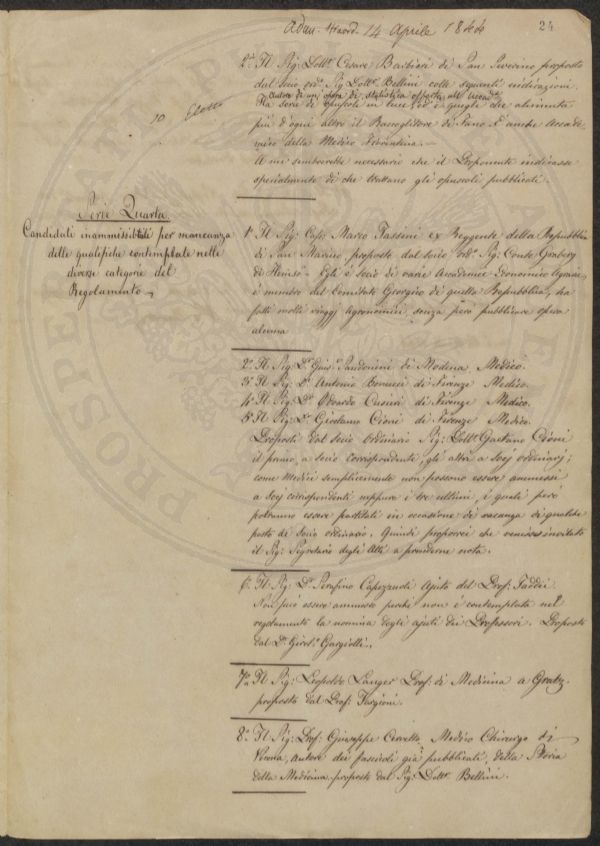 Adun. straord. 14 Aprile 1844
24
2° Il Sig: Dott. Cesare Barbieri di San Severino proposto
dal socio ord.° Sig. Dott. Bellini colle seguenti indicazioni.
autore di un opera di statistica offerta all'
Ha serie di opuscoli in luce, ed è quegli che alimenta
più d'ogni altro il Raccoglitore di Fano. È anche Accade-
mico della Medico Fiorentina.—
A me sembrerebbe necessario che il Proponente indicasse
specialmente di che trattano gli opuscoli pubblicati.
10 Eletto
Serie Quarta
Candidati inammissibili per mancanza
delle qualifiche contemplate nelle
diverse categorie del
Regolamento
1° Il Sig: Cap. Marco ex Reggente della Repubblica
di San Marino, proposto dal socio ord.° Sig: Conte Graberg
di Hemsö. Egli è socio di varie Accademie Economico Agrarie
è membro del Comitato Georgico di quella Repubblica, ha
fatti molti viaggi Agronomici, senza però pubblicare opera
alcuna
2° Il Sig: D.r Gius.e di Modena Medico.
3° Il Sig: D.r Antonio Bonucci di Firenze Medico.
4° Il Sig: D.r Odoardo di Firenze Medico.
5° Il Sig: D.r Girolamo Cioni di Firenze Medico.
Proposti dal socio ordinario Sig: Dott. Gaetano Cioni
il primo, a socio corrispondente, gli altri a Socj ordinarj;
come Medici semplicemente non possono essere ammessi
a Socj corrispondenti neppure i tre ultimi, i quali però
potranno essere partitati in occasione di vacanza di qualche
posto di socio ordinario. Quindi proporrei che venisse invitato
il Sig: Segretario degli Atti a prenderne nota.
6° Il Sig: D.r Serafino Capezzuoli Ajuto del Prof: Taddei.
Non può essere ammesso perchè non è contemplata nel
regolamento la nomina degli ajuti dei Professori. Proposto
dal D.r Girol.° Gargiolli.
7° Il Sig: Leopoldo Langer Prof: di Medicina a Gratz.
proposto dal Prof: Targioni.
8° Il Sig: Prof: Giuseppe Cervetto Medico Chirurgo di
Verona, autore dei fascicoli già pubblicati, della Storia
della Medicina. proposto dal Sig: Dott. Bellini.